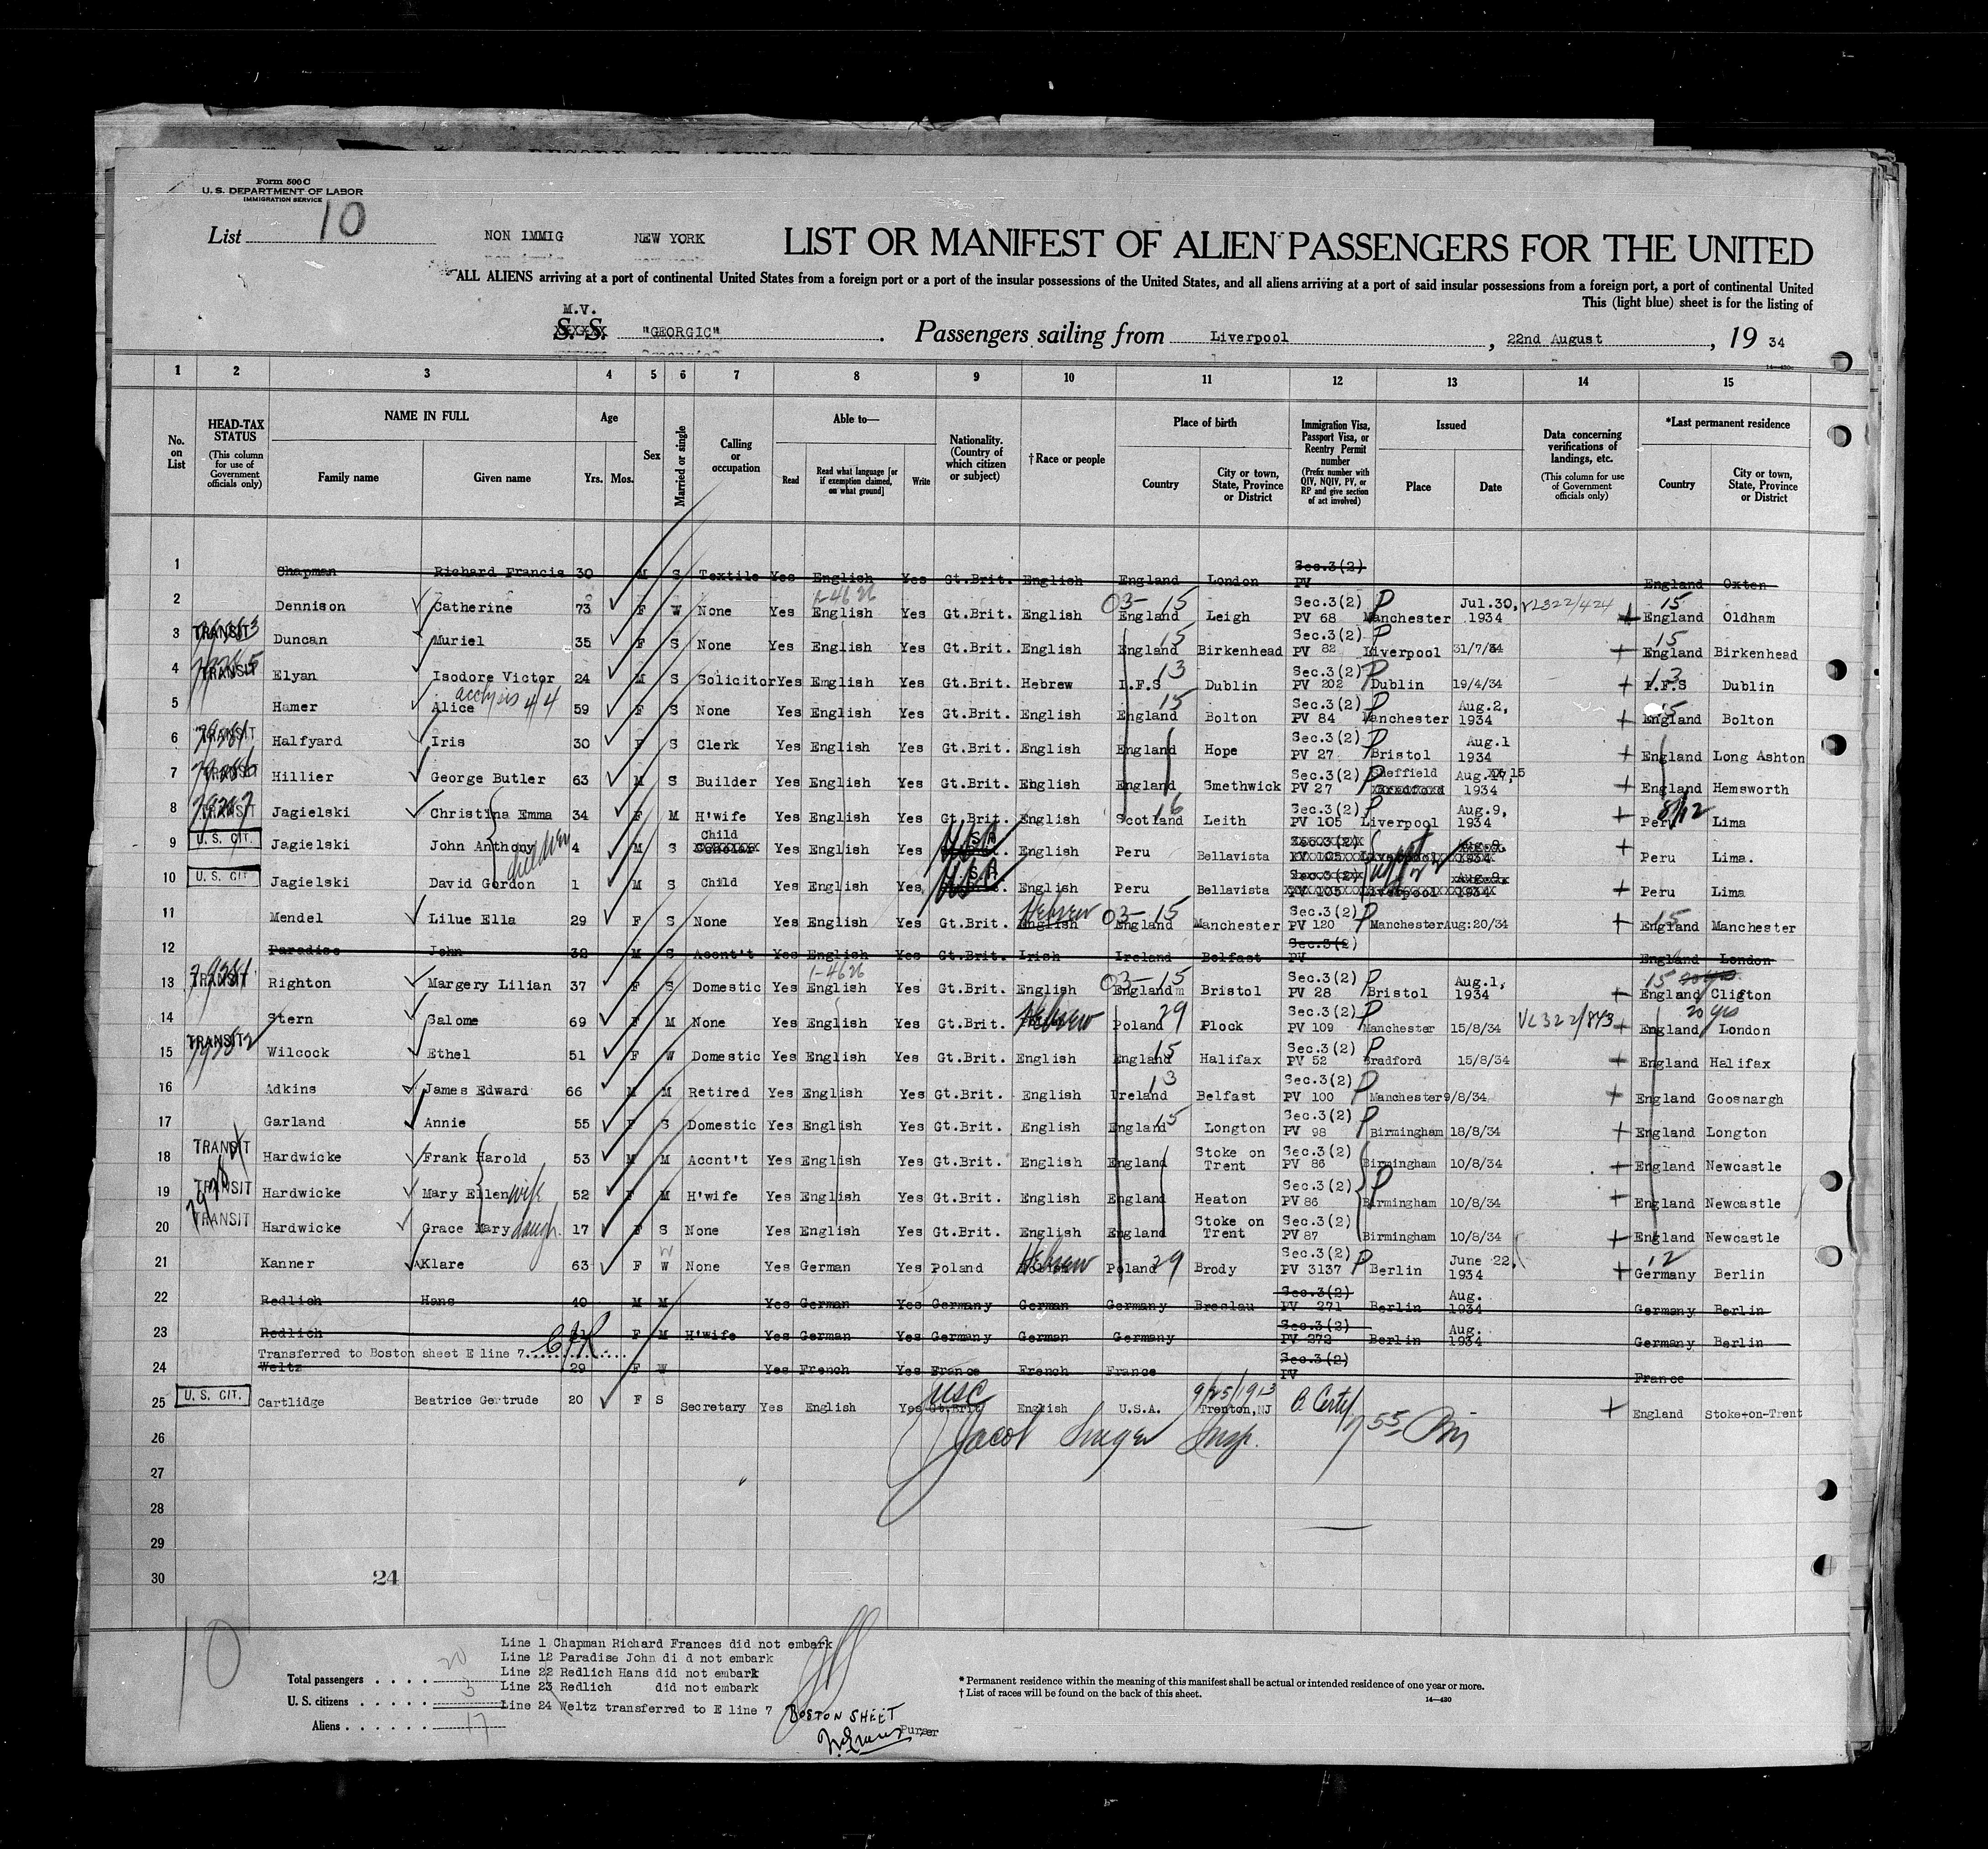 Form 500 C
U. S. DEPARTMENT OF LABOR
IMMIGRATION SERVICE
List 10
NON IMMIG NEW YORK
LIST OR MANIFEST OF ALIEN PASSENGERS FOR THE UNITED
ALL ALIENS arriving at a port of continental United States from a foreign port or a port of the insular possessions of the United States, and all aliens arriving at a port of said insular possessions from a foreign port, a port of continental United
This (light blue) sheet is for the listing of
M.V.
S. S. "GEORGIC" Passengers sailing from Liverpool, 22nd August, 19 34
1 2 3 4 5 6 7 8 9 10 11 12 13 14 15
No. on List
HEAD-TAX STATUS (This column for use of Government officials only)
NAME IN FULL
Family name Given name
Age Yrs. Mos.
Sex
Married or single
Calling or occupation
Able to—
Read Read what language [or if exemption claimed, on what ground] Write
Nationality. (Country of which citizen or subject)
†Race or people
Place of birth
Country City or town, State, Province or District
Immigration Visa, Passport Visa, or Reentry Permit number (Prefix number with QIV, NQIV, PV, or RP and give section of act involved)
Issued
Place Date
Data concerning verifications of landings, etc. (This column for use of Government officials only)
*Last permanent residence
Country City or town, State, Province or District
1 Chapman Richard Francis 30 M S Textile Yes English Yes Gt.Brit. English England London Sec.3(2) PV England Oxten
2 Dennison Catherine 73 F W None Yes 1-4626 English Yes Gt.Brit. English 03-15 England Leigh Sec.3(2) PV 68 P Manchester Jul.30, 1934 VL322/424 15 England Oldham
3 TRANSIT Duncan Muriel 35 F S None Yes English Yes Gt.Brit. English 15 England Birkenhead Sec.3(2) PV 82 P Liverpool 31/7/34 15 England Birkenhead
4 TRANSIT Elyan Isodore Victor 24 M S Solicitor Yes English Yes Gt.Brit. Hebrew 13 I.F.S Dublin Sec.3(2) PV 202 P Dublin 19/4/34 13 I.F.S Dublin
5 Hamer Alice 59 F S None Yes English Yes Gt.Brit. English 15 England Bolton Sec.3(2) PV 84 P Manchester Aug.2, 1934 15 England Bolton
6 TRANSIT Halfyard Iris 30 F S Clerk Yes English Yes Gt.Brit. English England Hope Sec.3(2) PV 27 P Bristol Aug.1 1934 England Long Ashton
7 TRANSIT Hillier George Butler 63 M S Builder Yes English Yes Gt.Brit. English England Smethwick Sec.3(2) PV 27 P Sheffield Bradford Aug. 15 1934 England Hemsworth
8 TRANSIT Jagielski Christina Emma 34 F M H'wife Yes English Yes Gt.Brit. English 16 Scotland Leith Sec.3(2) PV 105 P Liverpool Aug.9, 1934 Peru Lima
9 U. S. CIT. Jagielski John Anthony children 4 M S Child Scholar Yes English Yes U S A English Peru Bellavista Sec.3(2) PV 105 Liverpool Aug.9, 1934 Peru Lima.
10 U. S. CIT Jagielski David Gordon 1 M S Child Yes English Yes U S A English Peru Bellavista Sec.3(2) PV 105 Liverpool Aug.9 1934 Peru Lima
11 Mendel Lilue Ella 29 F S None Yes English Yes Gt.Brit. Hebrew English 03-15 England Manchester Sec.3(2) PV 120 P Manchester Aug:20/34 15 England Manchester
12 Paradise John 32 M S Accnt't Yes English Yes Gt.Brit. Irish Ireland Belfast Sec.3(2) PV England London
13 TRANSIT Righton Margery Lilian 37 F S Domestic Yes 1-4626 English Yes Gt.Brit. English 03-15 England Bristol Sec.3(2) PV 28 P Bristol Aug.1, 1934 15 England Clifton
14 Stern Salome 69 F M None Yes English Yes Gt.Brit. Hebrew Poland 29 Plock Sec.3(2) PV 109 P Manchester 15/8/34 VL322/843 England 20 yrs London
15 TRANSIT Wilcock Ethel 51 F W Domestic Yes English Yes Gt.Brit. English 15 England Halifax Sec.3(2) PV 52 P Bradford 15/8/34 England Halifax
16 Adkins James Edward 66 M M Retired Yes English Yes Gt.Brit. English 13 Ireland Belfast Sec.3(2) PV 100 P Manchester 9/8/34 England Goosnargh
17 Garland Annie 55 F S Domestic Yes English Yes Gt.Brit. English England 15 Longton Sec.3(2) PV 98 P Birmingham 18/8/34 England Longton
18 TRANSIT Hardwicke Frank Harold 53 M M Accnt't Yes English Yes Gt.Brit. English England Stoke on Trent Sec.3(2) PV 86 Birmingham 10/8/34 England Newcastle
19 TRANSIT Hardwicke Mary Ellen wife 52 F M H'wife Yes English Yes Gt.Brit. English England Heaton Sec.3(2) PV 86 P Birmingham 10/8/34 England Newcastle
20 TRANSIT Hardwicke Grace Mary daugh. 17 F S None Yes English Yes Gt.Brit. English England Stoke on Trent Sec.3(2) PV 87 Birmingham 10/8/34 England Newcastle
21 Kanner Klare 63 F W None Yes German Yes Poland Hebrew Poland 29 Brody Sec.3(2) PV 3137 P Berlin June 22, 1934 12 Germany Berlin
22 Redlich Hans 40 M M Yes German Yes Germany German Germany Breslau Sec.3(2) PV 271 Berlin Aug. 1934 Germany Berlin
23 Redlich 31 F M H'wife Yes German Yes Germany German Germany Sec.3(2) PV 272 Berlin Aug. 1934 Germany Berlin
Transferred to Boston sheet E line 7
24 Weltz 29 F W Yes French Yes France French France Sec.3(2) PV France
25 U. S. CIT. Cartlidge Beatrice Gertrude 20 F S Secretary Yes English Yes USC Gt.Brit English U.S.A. 9/25/1913 Trenton,NJ B. Certif England Stoke-on-Trent
26 Jacob Insp. 755
27
28
29
30 24
10
Line 1 Chapman Richard Frances did not embark
Line 12 Paradise John di d not embark
Line 22 Redlich Hans did not embark
Line 23 Redlich did not embark
Line 24 Weltz transferred to E line 7 BOSTON SHEET
Purser
Total passengers 20
U. S. citizens 3
Aliens 17
* Permanent residence within the meaning of this manifest shall be actual or intended residence of one year or more.
† List of races will be found on the back of this sheet.
14—430